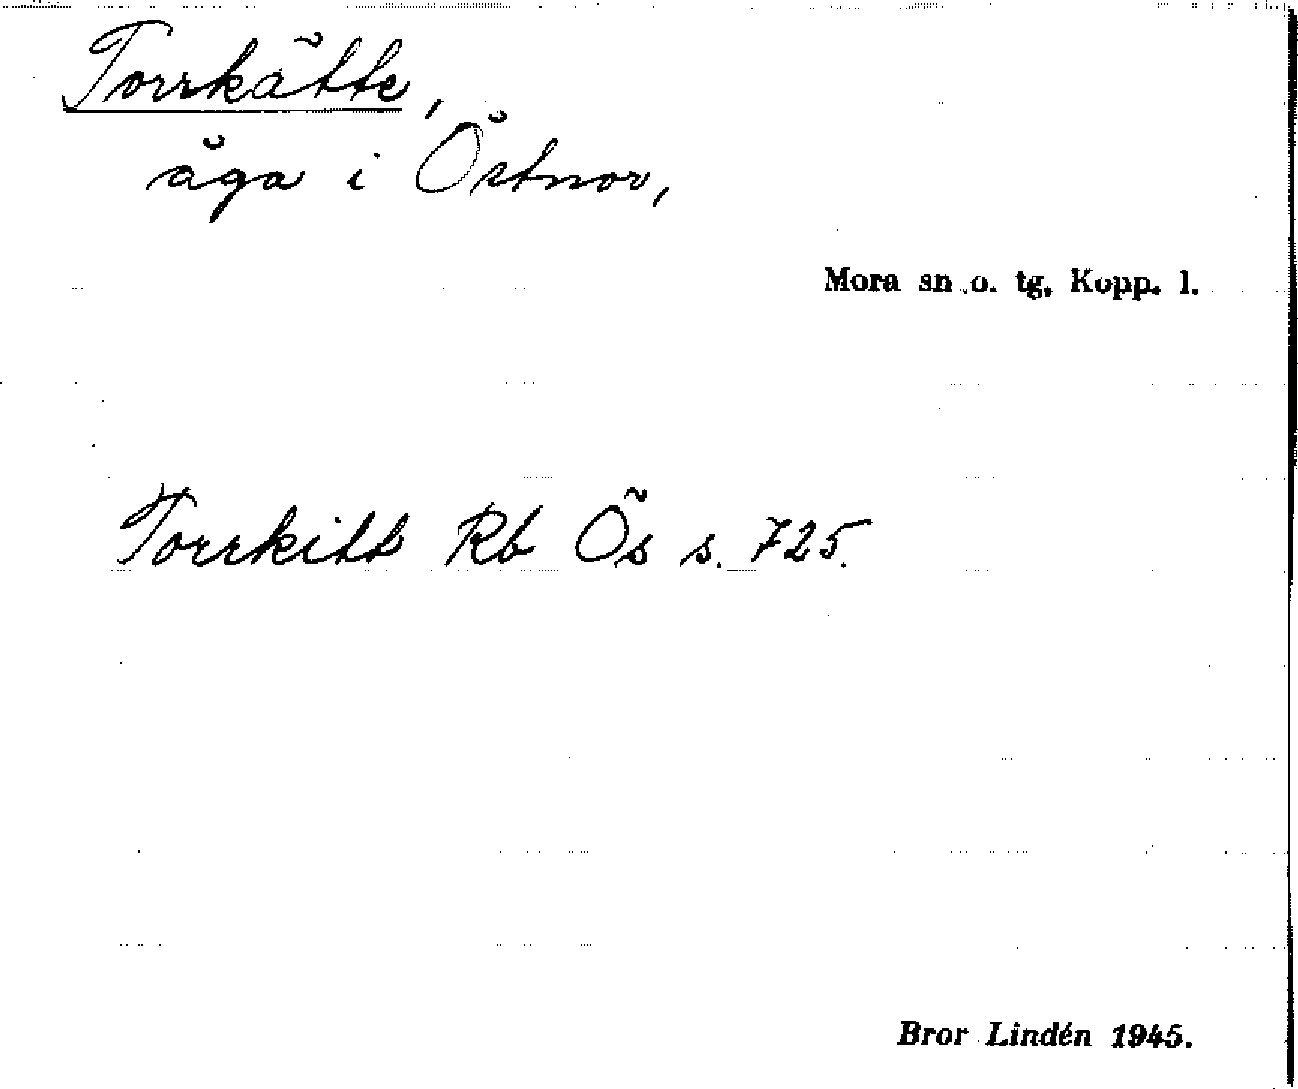 Torrkätte,
äga i Östnor,
Mora sn o. tg, Kopp. l.
Torrkitt Rb Ös s. 725.
Bror Lindén 1945.